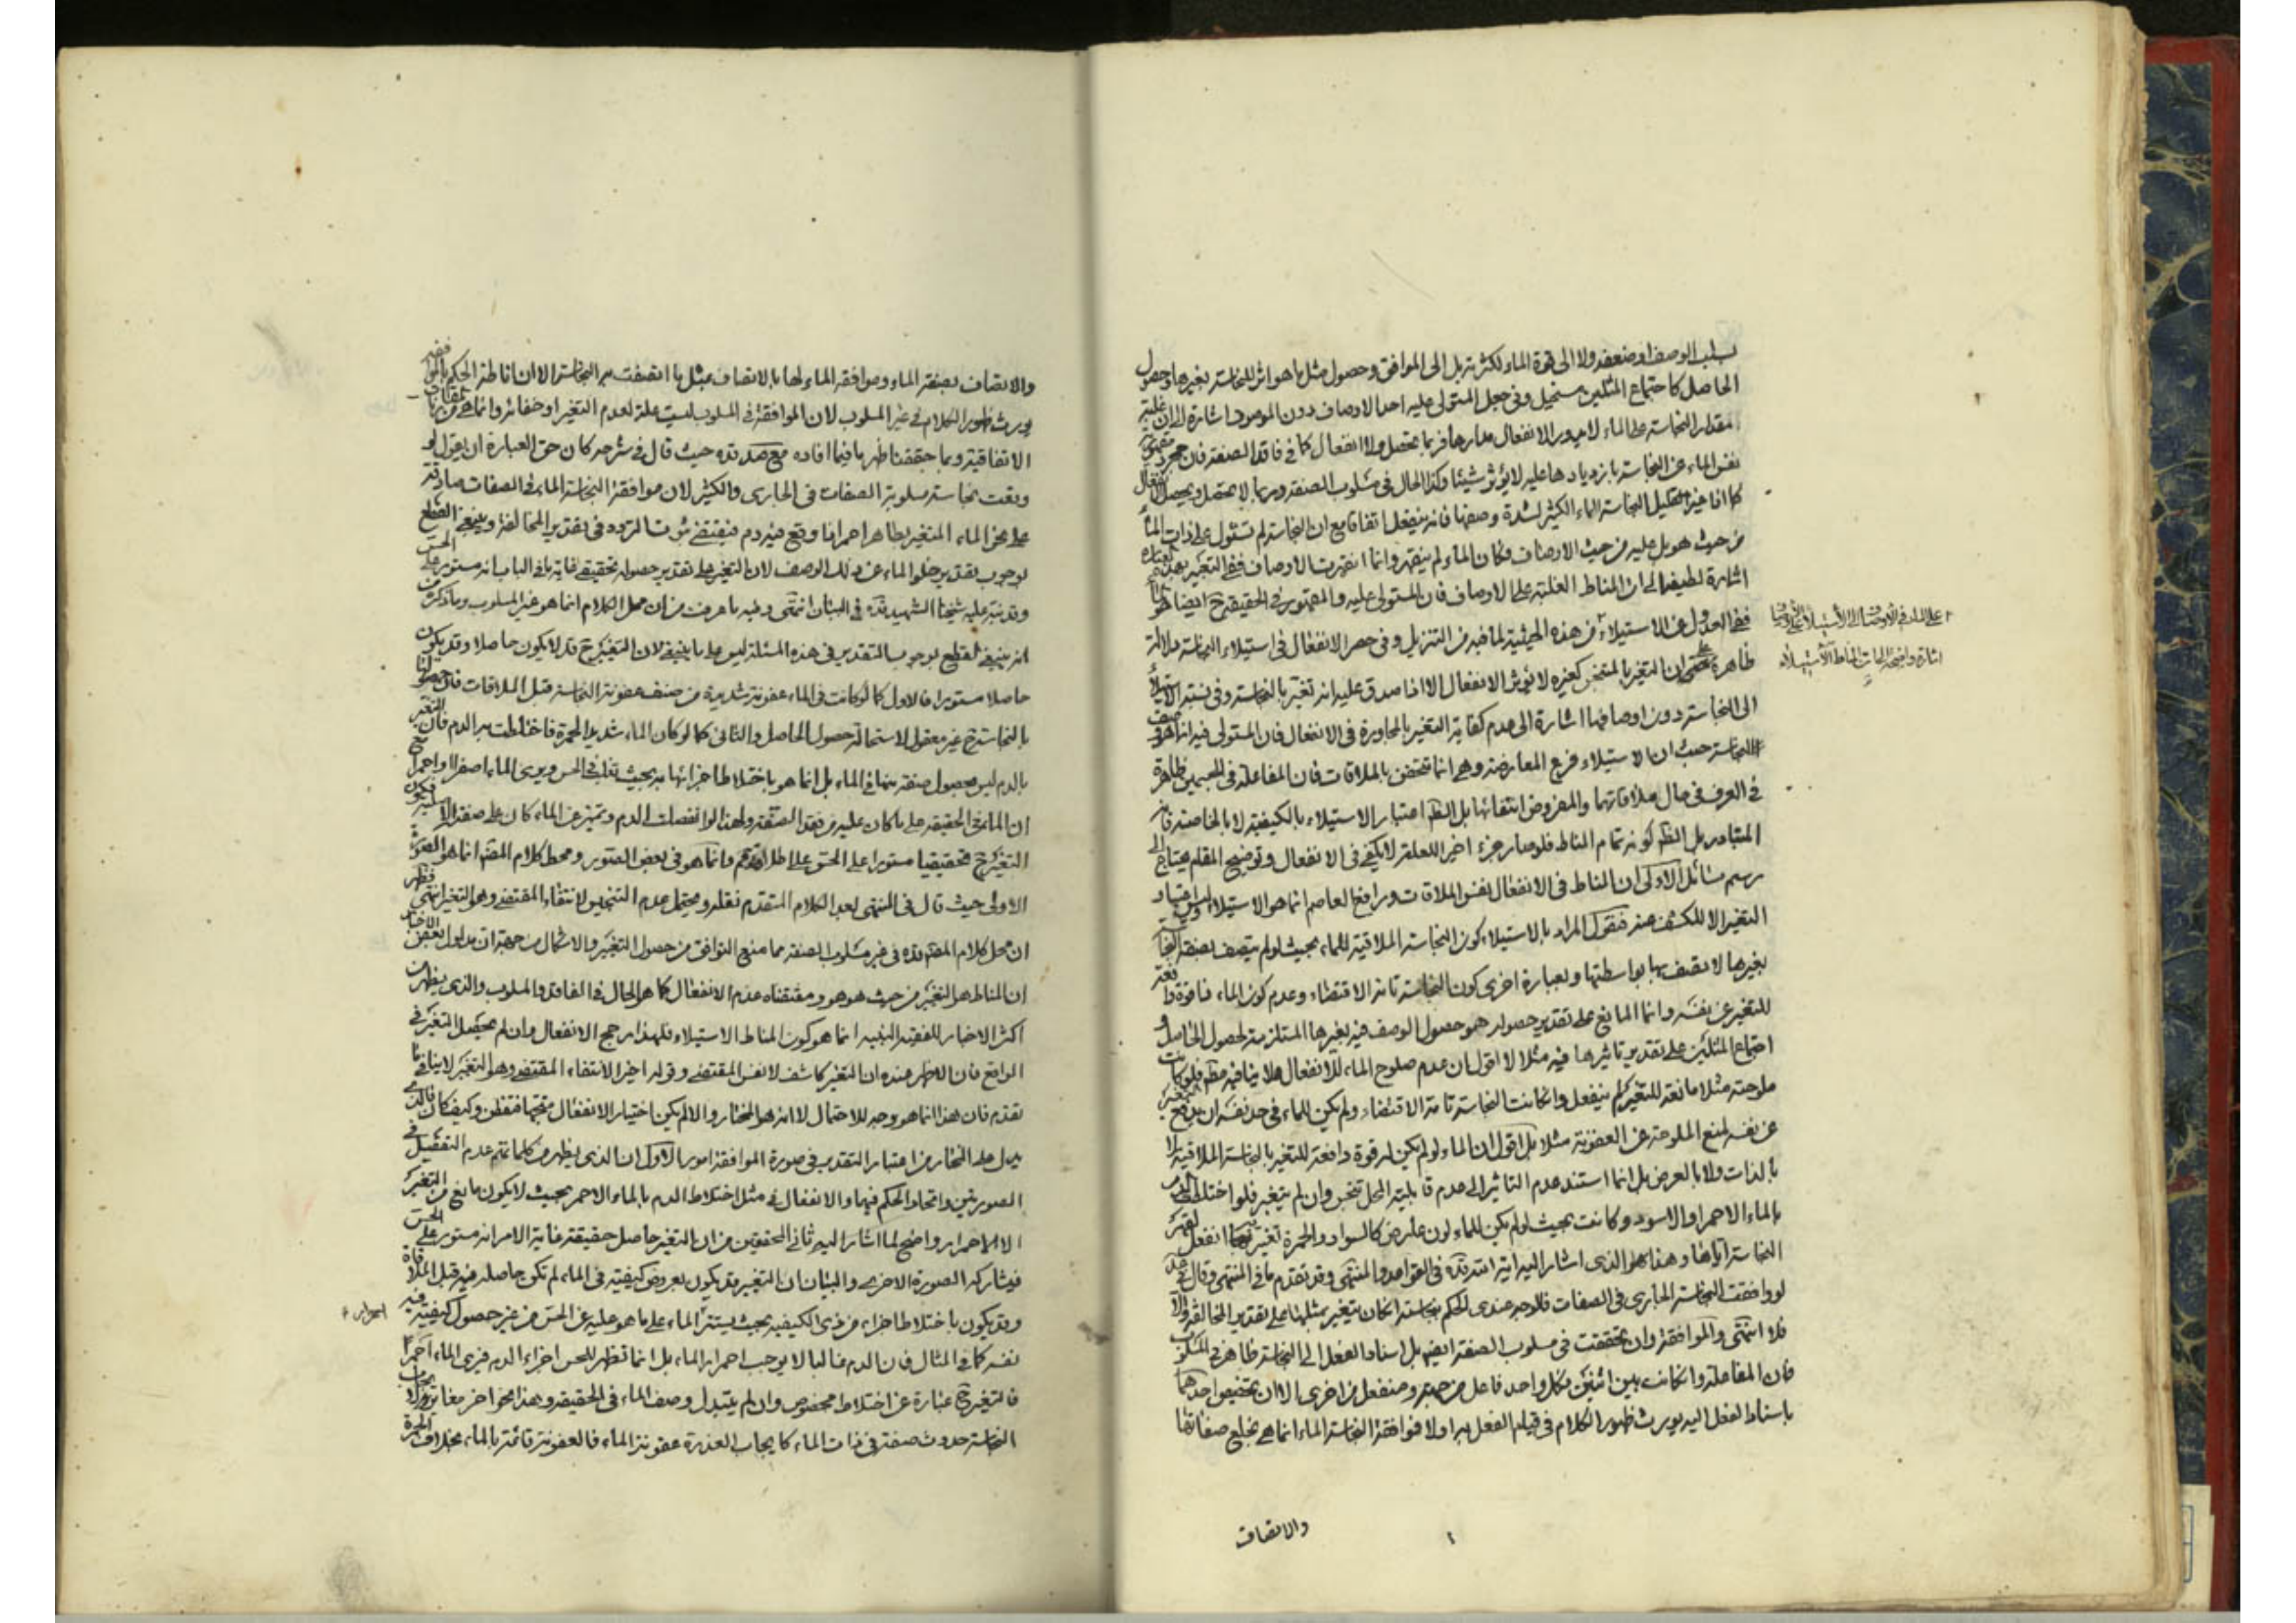 بسلب الوصف او ضعفه ولا الى قوة الماء لكثرته بل الى الموافق وحصول مثل ما هو اثر للنجاسة بغيرها وحصول
الحاصل كاجتماع المثلين مستحيل وفي جعل المستولى عليه احد الاوصاف دون الموصوف اشارة الى ان غلبة
مقدار النجاسة على الماء لا يدور الانفعال مدارها فربما يحصل ولا انفعال كما في فاقد الصفة فان مجرد
نفس الماء عن النجاسة بازديادها عليه لا يؤثر شيئا وكذا الحال في مسلوب الصفة وربما لا يحصل ويحصل الانفعال
كما اذا غير القليل النجاسة الماء الكثير لشدة وصفها فانه ينفعل اتفاقا مع ان النجاسة لم تستول على ذات الماء
من حيث هو بل عليه من حيث الاوصاف فكان الماء لم ينقهر وانما انقهرت الاوصاف ففي التغير
اشارة لطيفة الى ان المناط الغلبة على الاوصاف فان المستولى عليه والمقهور في الحقيقة ح ايضا هو الماء
ففي العدول عن الاستيلاء من هذه الحيثية لما فيه من التنزيل وفي حصر الانفعال في استيلاء النجاسة دلالة
ظاهرة على ان التغير بالمتنجس كغيره لا يؤثر الانفعال الا اذا صدق عليه انه تغير بالنجاسة وفي نسبة الاستيلاء
الى النجاسة دون اوصافها اشارة الى عدم كفاية التغير بالمجاورة في الانفعال فان المستولى فيه انما هو وصف
النجاسة حيث ان الاستيلاء فرع المعارضة وهي انما تتحقق بالملاقات فان المفاعلة في الجسمين ظاهرة
في العرف في حال ملاقاتهما والمفروض انتفائها بل الظ اعتبار الاستيلاء بالكيفية لا بالخاصة فانه
المتبادر بل الظ كونه تمام المناط فلو صار جزء اخير للعلة لا يكفي في الانفعال وتوضيح المقام يحتاج الى
رسم مسائل الاولى ان المناط في الانفعال نفس الملاقات ورافع العاصم انما هو الاستيلاء وليس اعتبار
التغير الا للكشف عنه فنقول المراد بالاستيلاء كون النجاسة الملاقية للماء بحيث لو لم يتصف بصفة النجاسة
بغيرها لاتصف بها بواسطتها وبعبارة اخرى كون النجاسة تامة الاقتضاء وعدم كون الماء ذا قوة دافعة
للتغير عن نفسه وانما المانع على تقدير حصوله هو حصول الوصف فيه بغيرها المستلزمة لحصول الحاصل و
اجتماع المثلين على تقدير تاثيرها فيه مثلا لا اقول ان عدم صلوح الماء للانفعال هلا ينافيه مطم فلو كانت
ملوحته مثلا مانعة للتغير لم ينفعل وان كانت النجاسة تامة الاقتضاء ولم يكن للماء في حد نفسه ان يدفع
عن نفسه لمنع الملوحة عن العفونة مثلا بل اقول ان الماء لو لم يكن له قوة دافعة للتغير بالنجاسة الملاقية لا
بالذات ولا بالعرض بل انما استند عدم التاثير الى عدم قابلية المحل تنجس وان لم يتغير فلو اختلط الدم
بالماء الاحمر او الاسود وكانت بحيث لو لم يكن للماء لون عارض كالسواد والحمرة تغير بها انفعل
النجاسة اياها وهذا هو الذي اشار اليه اية الله قده في القواعد والمنتهى وقد تقدم ما في المنتهى وقال في عد
لو وافقت النجاسة الجاري في الصفات فالوجه عندي الحكم بنجاسته ان كان يتغير بمثلها على تقدير المخالفة والا
فلا انتهى والموافقة وان تحققت في مسلوب الصفة ايضا بل اسناد الفعل الى النجاسة ظاهر في المسلوب
فان المفاعلة وان كانت بين اثنين فكل واحد فاعل من جهة ومنفعل من اخرى الا ان تخصيص احدهما
باسناد الفعل اليه يورث ظهور الكلام في قيام الفعل به اولا فموافقة النجاسة الماء انما هي بخلع صفاتها
والاتصاف
على الماء في الاوصاف الى الاستيلاء على الاوصاف
اشارة واضحة الى ان المناط الاستيلاء
والاتصاف بصفة الماء وموافقة الماء لها بالاتصاف بمثل ما اتصفت به النجاسة الا ان اناطة الحكم
يورث ظهور الكلام في غير المسلوب لان الموافقة في المسلوب ليست علة لعدم التغير او خفائه وانما هي من
الاتفاقية وبما حققنا ظهر ما فيما افاده مع صد قده حيث قال في شرحه كان حق العبارة ان يقول لو
وقعت نجاسة مسلوبة الصفات في الجاري والكثير لان موافقة النجاسة الماء في الصفات صادقة
على نحو الماء المتغير بطاهر احمر اذا وقع فيه دم فيقتضي ثبوت التردد في تقدير المخالفة وينبغي القطع
بوجوب تقدير خلو الماء عن ذلك الوصف لان التغير على تقدير حصوله تحقيقي غاية ما في الباب انه مستور على الحس
وقد نبه عليه شيخنا الشهيد قده في البيان انتهى وفيه ما عرفت من ان محل الكلام انما هو غير المسلوب وما ذكره من
انه ينبغي القطع بوجوب التقدير في هذه المسئلة ليس على ما ينبغي لان التغير ح قد لا يكون حاصلا وقد يكون
حاصلا مستورا فالاول كما لو كانت في الماء عفونة شديدة من صنف عفونة النجاسة قبل الملاقات فان حصولها
بالنجاسة ح غير معقول لاستحالة حصول الحاصل والثاني كما لو كان الماء شديد الحمرة فاختلطت به الدم فان التغير
بالدم ليس بحصول صفة منها في الماء بل انما هو باختلاط اجزائها به بحيث تغلب في الحس ويرى الماء اصفر او احمر
ان الماء في الحقيقة على ما كان عليه من فقد الصفة ولهذا لو انفصلت الدم وتميز عن الماء كان على صفته الاصلية فيكون
التغير ح تحقيقيا مستورا على الحس على اطلاقه مم وانما هو في بعض الصور ومحط كلام المصنف انما هو الصورة
الاولى حيث قال في المنتهى بعد الكلام المتقدم نقله ويحتمل عدم التنجيس لانتفاء المقتضي وهو التغير انتهى فظهر
ان محل كلام المصنف قده في غير مسلوب الصفة مما منع التوافق من حصول التغير والاشكال من جهة ان مدلول بعض الاخبار
ان المناط هو التغير من حيث هو هو ومقتضاه عدم الانفعال كما هو الحال في الفاقد والمسلوب والذي يظهر من
اكثر الاخبار للفقيه النبيه انما هو كون المناط الاستيلاء فلهذا رجح الانفعال وان لم يحصل التغير في
الواقع فان الاظهر عنده ان التغير كاشف لا نفس المقتضي وقوله اخيرا لانتفاء المقتضي وهو التغير لا ينافي ما
تقدم فان هذا انما هو وجه للاحتمال لا انه هو المختار والا لم يكن اختيار الانفعال متجها فتفطن وكيف كان فالذي
يدل على المختار من اعتبار التقدير في صورة الموافقة امور الاول ان الذي يظهر من كلماتهم عدم التفصيل في
الصورتين واتحاد الحكم فيهما والانفعال في مثل اختلاط الدم بالماء الاحمر بحيث لا يكون مانع من التغير
الا الاحمرار واضح لما اشار اليه ثاني المحققين من ان التغير حاصل حقيقة غاية الامر انه مستور على الحس
فيشاركه الصورة الاخرى والبيان ان التغير قد يكون بعروض كيفية في الماء لم تكن حاصلة فيه قبل الملاقاة
وقد يكون باختلاط اجزاء من ذي الكيفية بحيث يستتر الماء على ما هو عليه عن الحس من غير حصول كيفية فيه
نفسه كما في المثال فان الدم غالبا لا يوجب احمرار الماء بل انما تظهر للحس اجزاء الدم فيرى الماء احمر
فالتغير ح عبارة عن اختلاط مخصوص وان لم يتبدل وصف الماء في الحقيقة وهذا نحو اخر مغاير
النجاسة حدوث صفة في ذات الماء كايجاب العذرة عفونة الماء فالعفونة قائمة بالماء بخلاف الحمرة